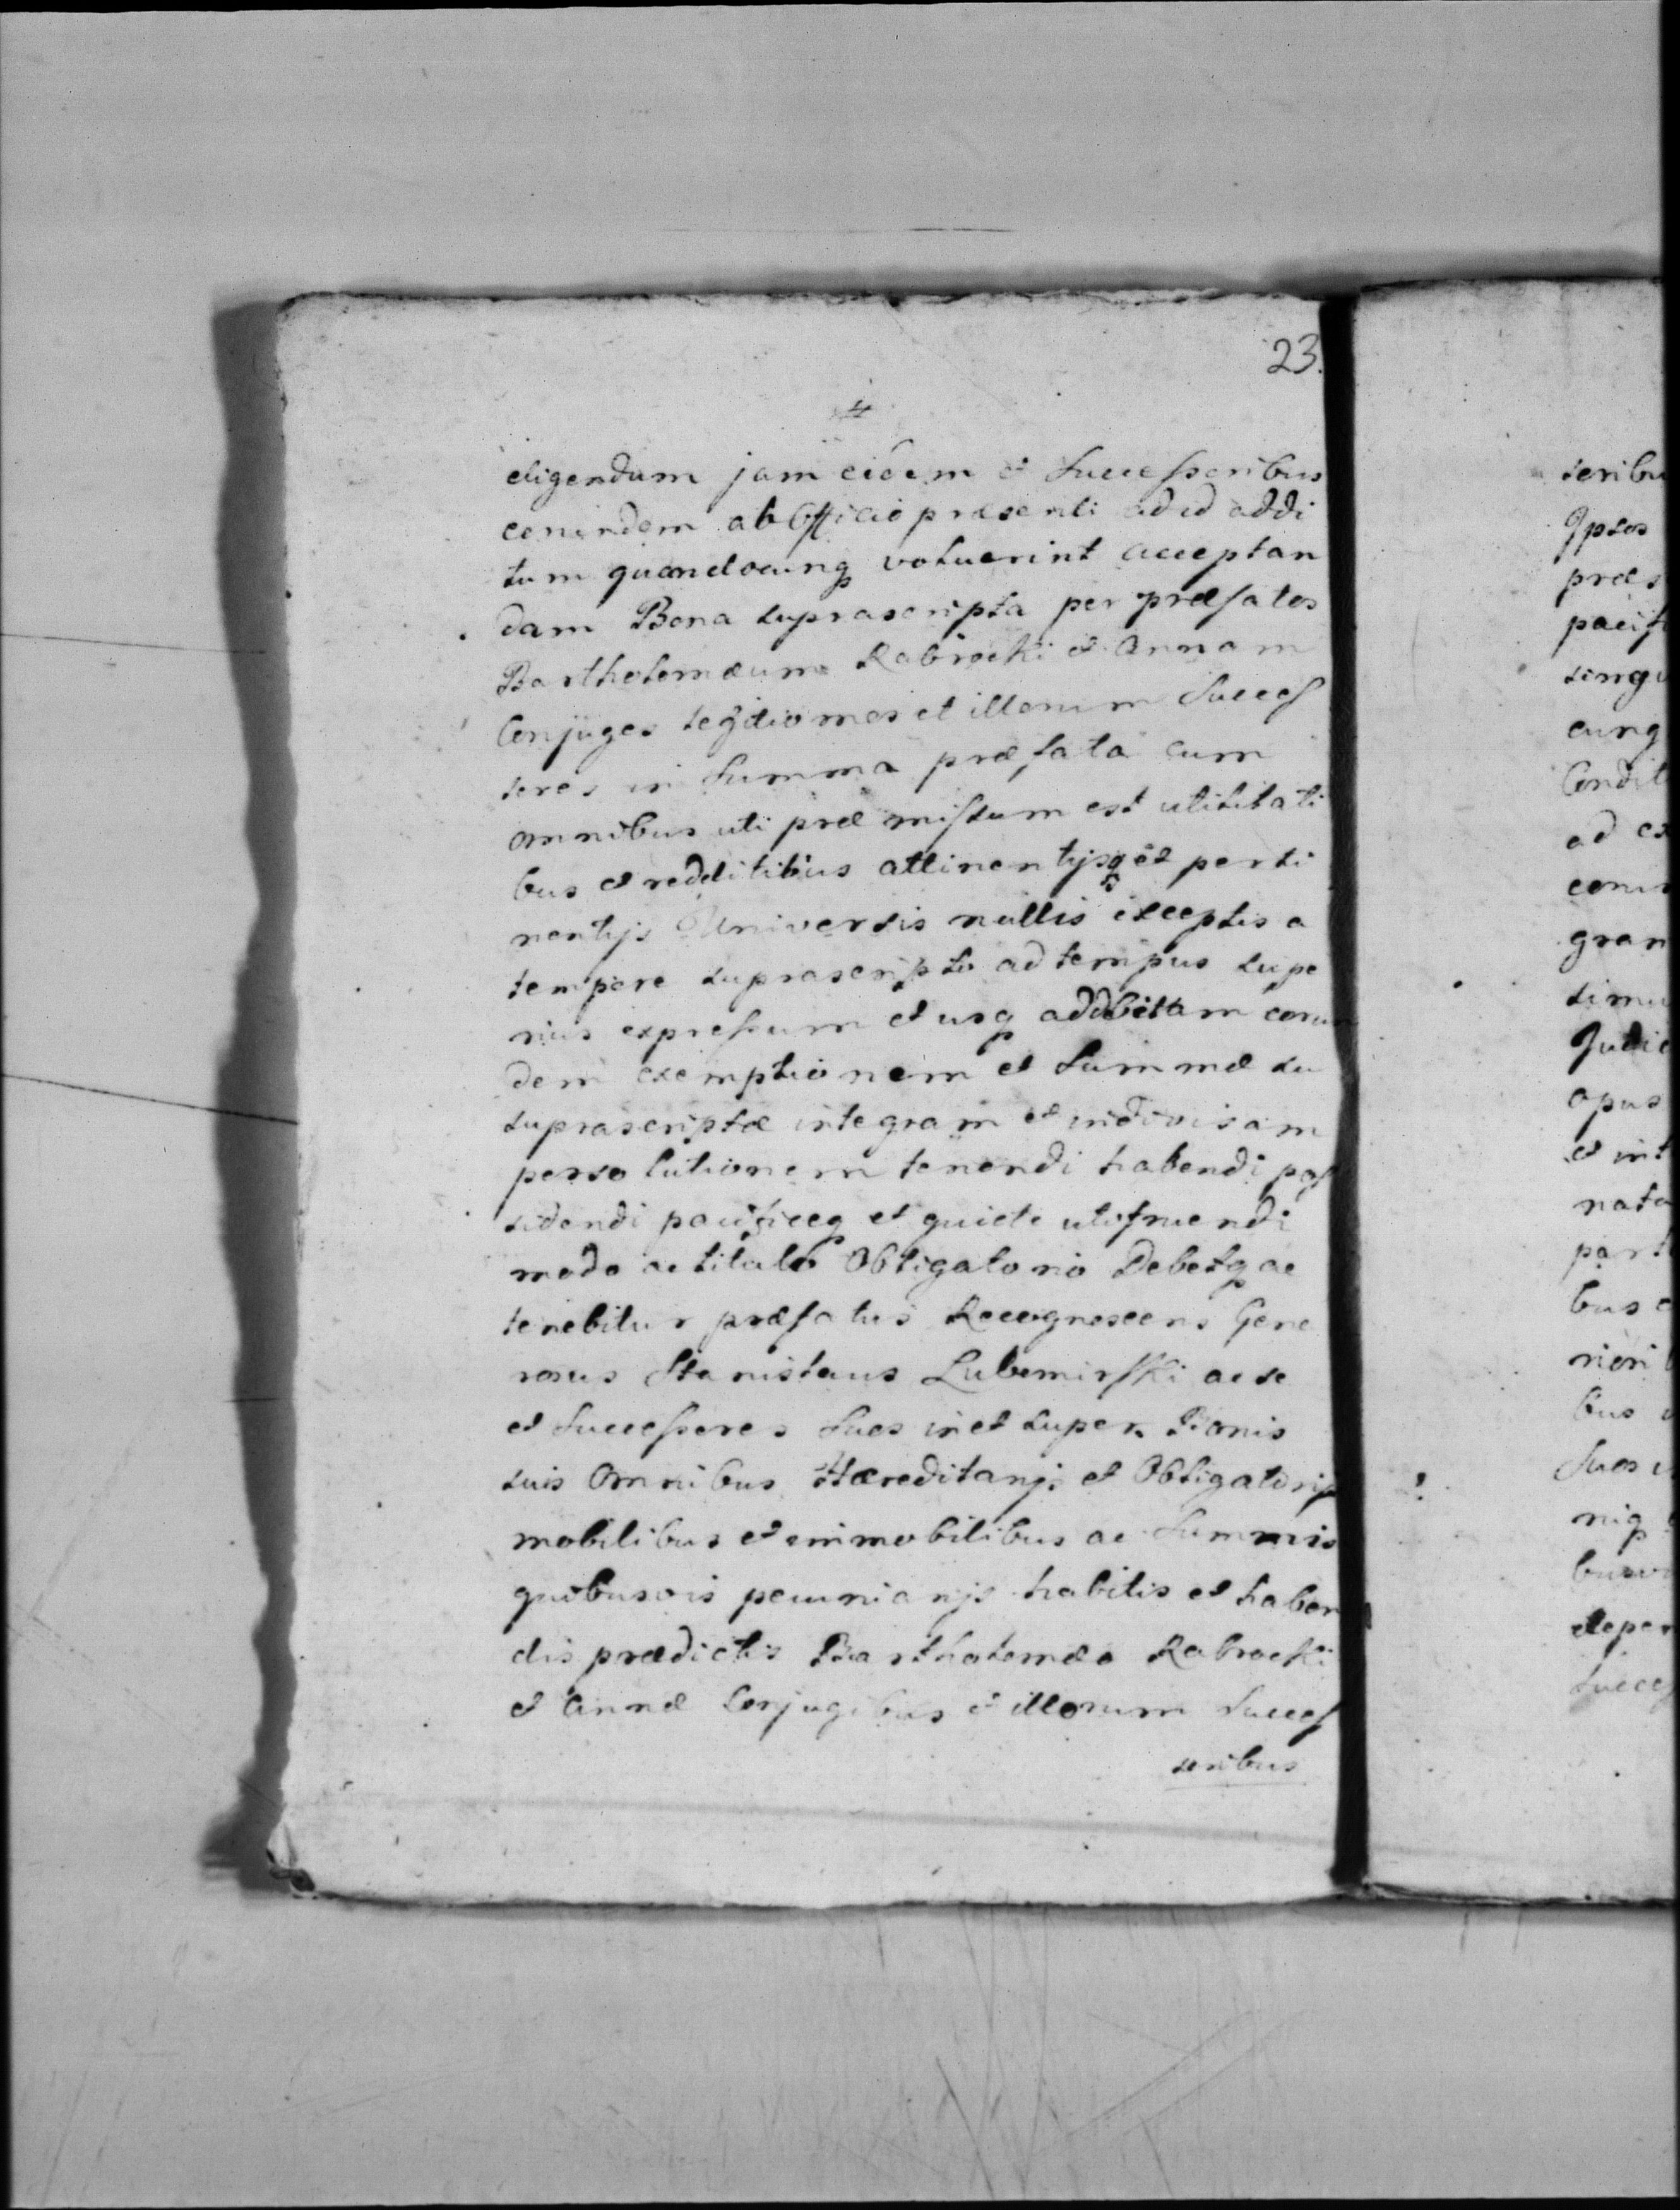 23.
#
eligendum jam eidem et Successoribus
eorundem ab Officio præsenti ad id addi
tum quandocunq volucrint acceptan
dam Bona suprascripta per præfatos
Bartholomæum Rabrocki et Annam
Conjuges legitiomos et illorum Succes
sores in Summa præfata cum
omnibus uti præmissum est utilitati
bus et redditibus attinentijsq et perti
nentijs Universis nullis exceptis a
tempore suprascripto ad tempus supe
rius expressum et usq ad debitam eorun
dem exemptionem et Summæ su
suprascriptæ integram et indivisam
persolutionem tenendi habendi pos
sidendi pacificeq et quiete utifruendi
modo ac titulo Obligatorio Debetq ac
tenebitur præfatus Recognoscens Gene
rosus Stanislaus Lubomirski ac se
et Successores Suos in et super Bonis
suis Omnibus Hæreditarijs et Obligatorijs
mobilibus et immobilibus ac Summis
quibusvis pecuniarijs habitis et haben
dis prædictis Bartholomæo Rabrocki
et Annæ Conjugibus et illorum Succes
soribus
soribu
Ipsos
præs
pacif
singu
cunq
Condit
ad ex
coru
gran
simu
Judic
opus
et int
nata
part
bus c
riori
bus
Suos i
niq
busvi
deper
Succes